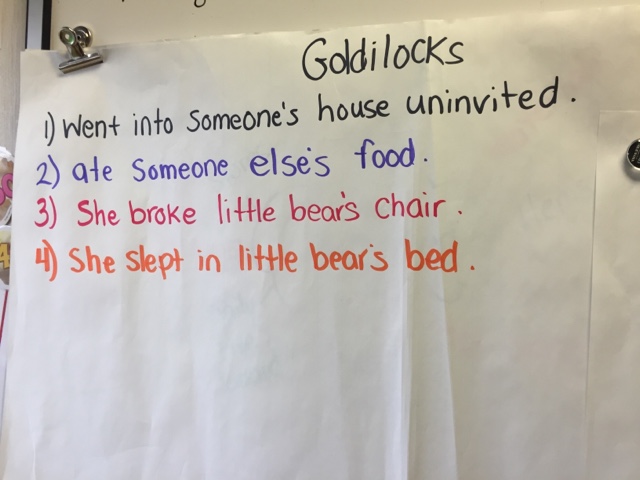 Goldilocks
1) Went into Someone's house uninvited.
2) ate Someone else's food.
3) She broke little bear's Chair.
4) She slept in little bear's bed.